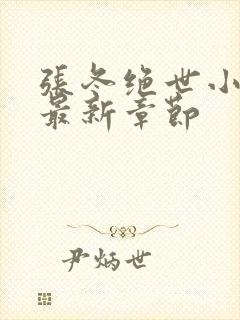 張冬绝世小
最新章節
尹炳世